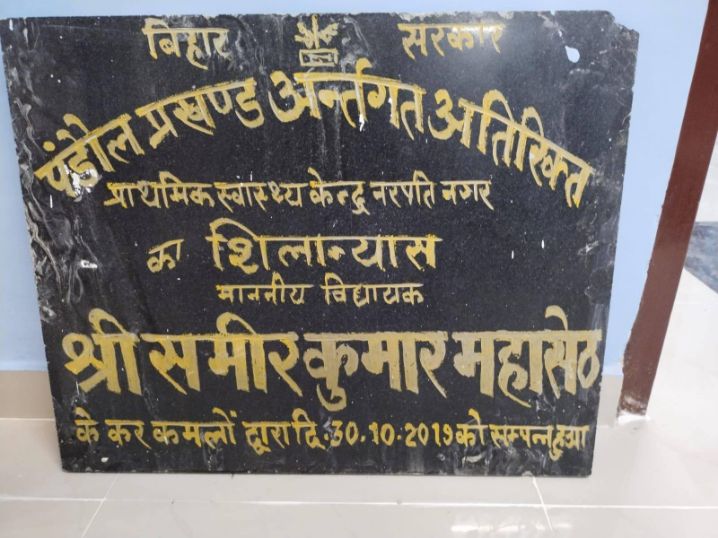 बिहार सरकार
पंडौल प्रखण्ड अर्न्तगत अतिरिक्त
प्राथमिक स्वास्थ्य केन्द्र नरपति नगर
का शिलान्यास
माननीय विद्यायक
श्री समीर कुमार महासेठ
के कर कमलों द्वारा दि. 30.10.2019 को सम्पन्न हुआ